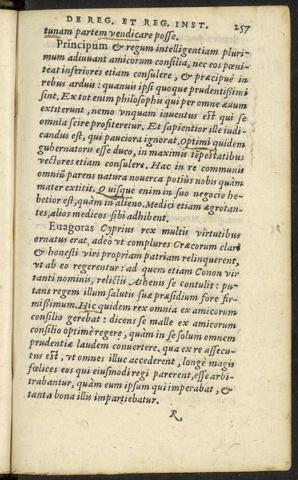 DE REG. ET REG. INST. 257
tunam partem vendicare posse.
Principum & regum intelligentiam pluri-
mum adiuuant amicorum consilia, nec eos pœni-
teat inferiores etiam consulere, & præcipuè in
rebus arduis: quanuis ipsi quoque prudentissimi
sint. Ex tot enim philosophis qui per omne æuum
extiterunt, nemo vnquam inuentus est qui se
omnia scire profiteretur. Et sapientior ille iudi-
candus est, qui pauciora ignorat. Optimi quidem
gubernatoris esse duco, in maximis tẽpestatibus
vectores etiam consulere. Hac in re communis
omniũ parens natura nouerca potiùs nobis quàm
mater extitit. Quisque enim in suo negocio he-
betior est, quàm in alieno. Medici etiam ægrotan-
tes, alios medicos sibi adhibent.
Euagoras Cyprius rex multis virtutibus
ornatus erat, adeò vt complures Græcorum clari
& honesti viri propriam patriam relinquerent,
vt ab eo regerentur: ad quem etiam Conon vir
tanti nominis, relictis Athenis se contulit: pu-
tans regem illum salutis suæ præsidium fore fir-
missimum. Hic quidem rex omnia ex amicorum
consilio gerebat: dicens se malle ex amicorum
consilio optimè regere, quàm in se solum omnem
prudentiæ laudem conuertere. qua ex re assecu-
tus est, vt omnes illuc accederent, longè magis
fœlices eos qui eiusmodi regi parerent, esse arbi-
trabantur, quàm eum ipsum qui imperabat, &
tanta bona illis impartiebatur.
R